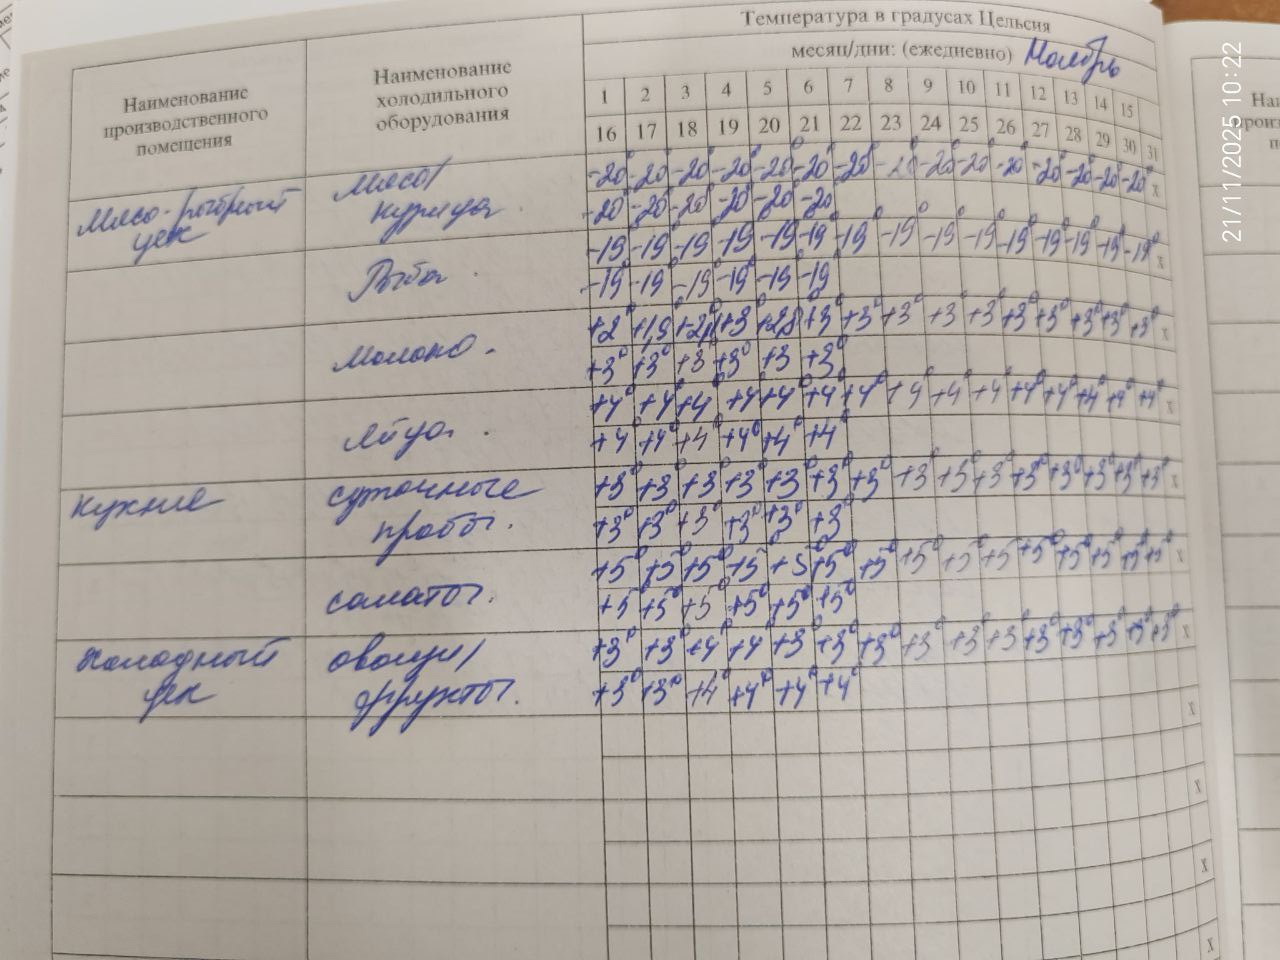 Температура в градусах Цельсия
месяц/дни: (ежедневно) Ноябрь
Наименование
производственного
помещения
Наименование
холодильного
оборудования
1 2 3 4 5 6 7 8 9 10 11 12 13 14 15
16 17 18 19 20 21 22 23 24 25 26 27 28 29 30 31
Мясо-рыбный
цех
Мясо/
курица
-20° -20° -20° -20° -20° -20° -20° -20° -20° -20° -20° -20° -20° -20° -20° x
-20° -20° -20° -20° -20° -20
Рыба
-19 -19 -19 -19 -19 -19 -19 -19° -19° -19° -19° -19° -19° -19° -19° x
-19° -19 -19 -19° -19 -19
Молоко.
+2° +1,9 +2,1 +3 +2,8 +3° +3° +3° +3° +3° +3° +3° +3° +3° +3° x
+3° +3° +3 +3° +3 +3°
Яйца.
+4° +4° +4 +4 +4° +4° +4° +4° +4° +4° +4° +4° +4° +4° +4° x
+4° +4° +4° +4° +4° +4°
Кухня
суточные
пробы.
+3° +3° +3° +3° +3° +3° +3° +3° +3° +3° +3° +3° +3° +3° +3° x
+3° +3° +3° +3° +3° +3°
салаты.
+5° +5° +5° +5 +5° +5° +5° +5° +5° +5 +5° +5° +5° +5° +5° x
+5° +5° +5° +5° +5° +5°
Холодный
цех
овощи/
фрукты.
+3° +3° +4° +4° +3° +3° +3° +3° +3° +3° +3° +3° +3° +3° +3° x
+3° +3° +4° +4° +4° +4°
x
x
x
x
21/11/2025 10:22